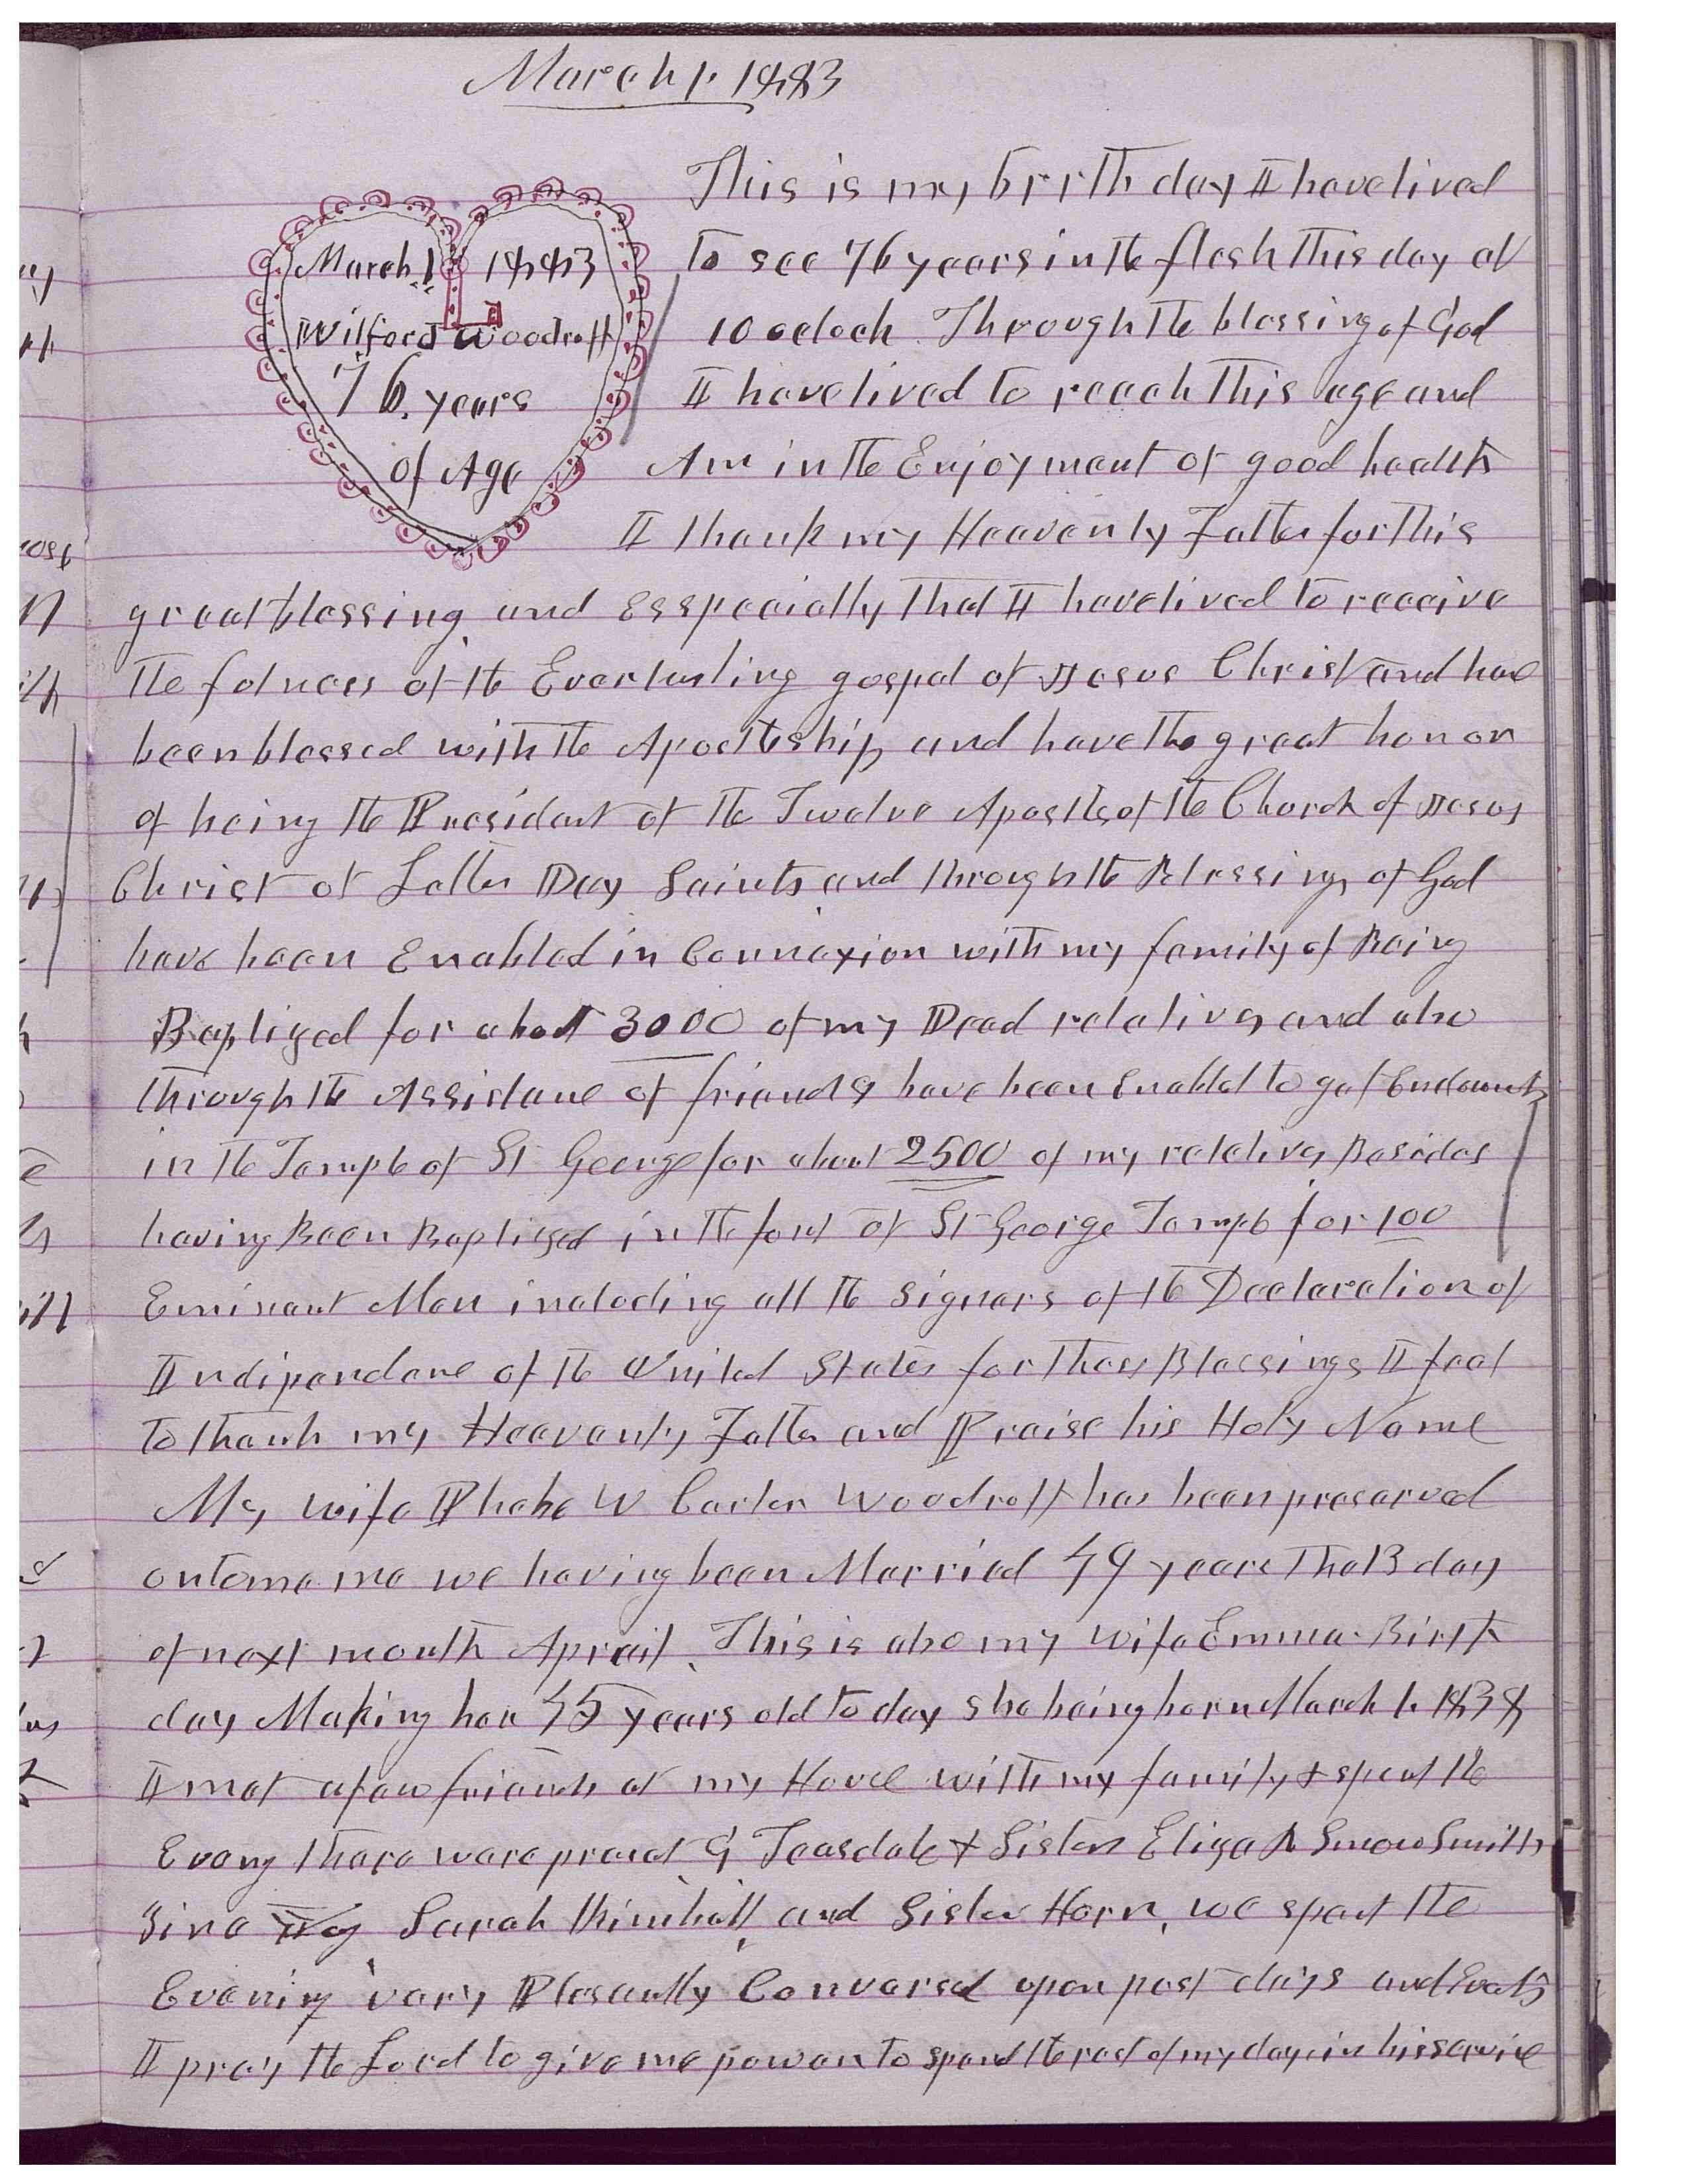 March 1. 1883
March 1 1883
Wilford Woodruff
76. years
of Age
This is my birth day I have lived
to see 76 years in the flesh this day at
10 oclock. Through the blessing of God
I have lived to reach this age and
Am in the Enjoyment of good health
I thank my Heavenly Father for this
great blessing and Esspecially that I have lived to receive
the fulness of the Everlasting gospel of Jesus Christ and have
been blessed with the Apostleship and have the great honor
of being the President of the Twelve Apostles of the Church of Jesus
Christ of Latter Day Saints and through the Blessing of God
have been Enabled in Connexion with my family of Being
Baptized for about 3000 of my Dead relatives and also
through the Assistance of friends have been Enabled to get Endowments
in the Temple of St George for about 2500 of my relatives Besides
having Been Baptized in the font of St George Temple for 100
Eminent Men including all the signers of the Declaration of
Indipendance of the United States for these Blessings I feel
to thank my Heavenly Father and Praise his Holy Name
My wife Phebe W Carter Woodruff has been preserved
unto me we having been Married 49 years the 13 day
of next month Aprail. This is also my wife Emma Birth
day Making her 45 years old to day she being born March 1. 1838
I met a few friends at my House with my family & spent the
Eveng there were presnt G Teasdale & Sister Eliza R Snow Smith
Zina Sarah Kimball, and Sister Horn, we spent the
Evening very Plesantly Conversed upon past days and Events
I pray the Lord to give me power to spend the rest of my days in his service